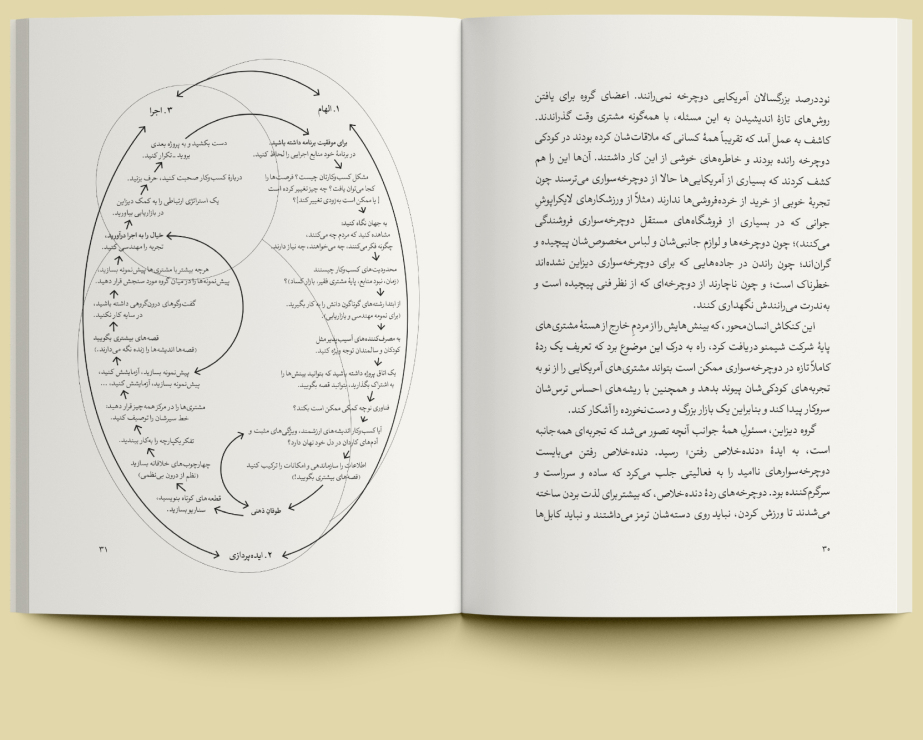 نوددرصد بزرگسالان آمریکایی دوچرخه نمی‌رانند. اعضای گروه برای یافتن
روش‌های تازهٔ اندیشیدن به این مسئله، با همه‌گونه مشتری وقت گذراندند.
کاشف به عمل آمد که تقریباً همهٔ کسانی که ملاقات‌شان کرده بودند در کودکی
دوچرخه رانده بودند و خاطره‌های خوشی از این کار داشتند. آن‌ها این را هم
کشف کردند که بسیاری از آمریکایی‌ها حالا از دوچرخه‌سواری می‌ترسند چون
تجربهٔ خوبی از خرید از خرده‌فروشی‌ها ندارند (مثلاً از ورزشکارهای لایکراپوشِ
جوانی که در بسیاری از فروشگاه‌های مستقل دوچرخه‌سواری فروشندگی
می‌کنند)؛ چون دوچرخه‌ها و لوازم جانبی‌شان و لباس مخصوص‌شان پیچیده و
گران‌اند؛ چون راندن در جاده‌هایی که برای دوچرخه‌سواری دیزاین نشده‌اند
خطرناک است؛ و چون ناچارند از دوچرخه‌ای که از نظر فنی پیچیده است و
به‌ندرت می‌رانندش نگهداری کنند.
این کنکاش انسان‌محور، که بینش‌هایش را از مردمِ خارج از هستهٔ مشتری‌های
پایهٔ شرکت شیمنو دریافت کرد، راه به درک این موضوع برد که تعریف یک ردهٔ
کاملاً تازه در دوچرخه‌سواری ممکن است بتواند مشتری‌های آمریکایی را از نو به
تجربه‌های کودکی‌شان پیوند بدهد و همچنین با ریشه‌های احساس ترس‌شان
سروکار پیدا کند و بنابراین یک بازار بزرگ و دست‌نخورده را آشکار کند.
گروه دیزاین، مسئولِ همهٔ جوانب آنچه تصور می‌شد که تجربه‌ای همه‌جانبه
است، به ایدهٔ «دنده‌خلاص رفتن» رسید. دنده‌خلاص رفتن می‌بایست
دوچرخه‌سوارهای ناامید را به فعالیتی جلب می‌کرد که ساده و سرراست و
سرگرم‌کننده بود. دوچرخه‌های ردهٔ دنده‌خلاص، که بیشتر برای لذت بردن ساخته
می‌شدند تا ورزش کردن، نباید روی دسته‌شان ترمز می‌داشتند و نباید کابل‌ها
۳۰
۱. الهام
برای موفقیت برنامه داشته باشید.
در برنامهٔ خود منابع اجرایی را لحاظ کنید.
مشکل کسب‌وکارتان چیست؟ فرصت‌ها را
کجا می‌توان یافت؟ چه چیز تغییر کرده است
[یا ممکن است به‌زودی تغییر کند]؟
به جهان نگاه کنید:
مشاهده کنید که مردم چه می‌کنند،
چگونه فکر می‌کنند، چه می‌خواهند، چه نیاز دارند.
محدودیت‌های کسب‌وکار چیستند
(زمان، نبود منابع، پایهٔ مشتری فقیر، بازار کساد)؟
از ابتدا رشته‌های گوناگون دانش را به کار بگیرید.
(برای نمونه مهندسی و بازاریابی).
به مصرف‌کننده‌های آسیب‌پذیر مثل
کودکان و سالمندان توجه ویژه کنید.
یک اتاق پروژه داشته باشید که بتوانید بینش‌ها را
به اشتراک بگذارید، بتوانید قصه بگویید.
فناوری نو چه کمکی ممکن است بکند؟
آیا کسب‌وکار اندیشه‌های ارزشمند، ویژگی‌های مثبت و
آدم‌های کاردان در دل خود نهان دارد؟
اطلاعات را سازماندهی و امکانات را ترکیب کنید
(قصه‌های بیشتری بگویید!)
طوفانِ ذهنی
۲. ایده‌پردازی
قطعه‌های کوتاه بنویسید،
سناریو بسازید.
چهارچوب‌های خلاقانه بسازید
(نظم از درون بی‌نظمی)
تفکر یکپارچه را به‌کار ببندید.
مشتری‌ها را در مرکز همه‌چیز قرار دهید؛
خط سیرشان را توصیف کنید.
پیش‌نمونه بسازید، آزمایشش کنید،
پیش‌نمونه بسازید، آزمایشش کنید، ...
قصه‌های بیشتری بگویید
(قصه‌ها اندیشه‌ها را زنده نگه می‌دارند.)
گفت‌وگوهای درون‌گروهی داشته باشید،
در سایه کار نکنید.
هرچه بیشتر با مشتری‌ها پیش‌نمونه بسازید،
پیش‌نمونه‌ها را در میان گروه مورد سنجش قرار دهید.
خیال را به اجرا درآورید،
تجربه را مهندسی کنید.
یک استراتژی ارتباطی را به کمک دیزاین
در بازاریابی بیاورید.
دربارهٔ کسب‌وکار صحبت کنید، حرف بزنید.
دست بکشید و به پروژه بعدی
بروید ـ تکرار کنید.
۳. اجرا
۳۱